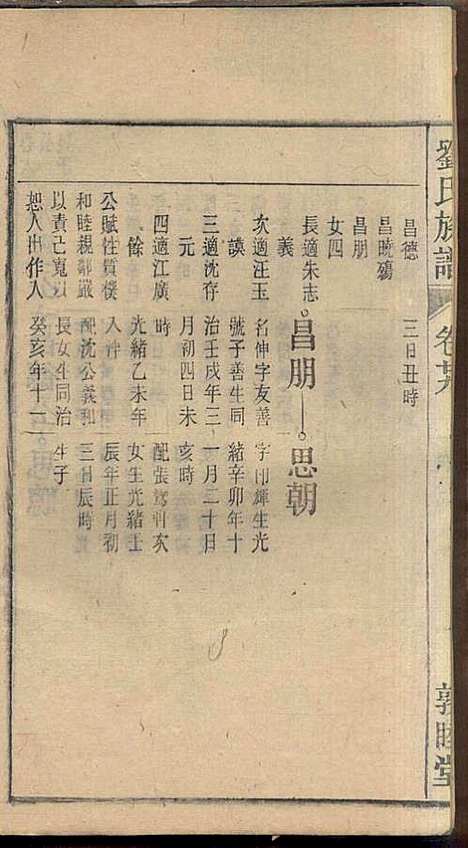 劉氏族譜
卷廿六
敦睦堂
昌德 三日丑時
昌晚殤
昌朋
女四
長適朱志
義
昌朋 思朝
次適汪玉 名伸字友善 字印輝生光
謨 號子善生同 緒辛卯年十
三適沈存 治壬戌年三 一月二十日
元 月初四日未 亥時
四適江廣 時 配張篤 女
餘 光緒乙未年 女生光緒壬
公賦性質樸 入泮 辰年正月初
和睦親鄰嚴 配沈公義和 三日辰時
以責己寬以 長女生同治 生子
恕人出作入 癸亥年十一